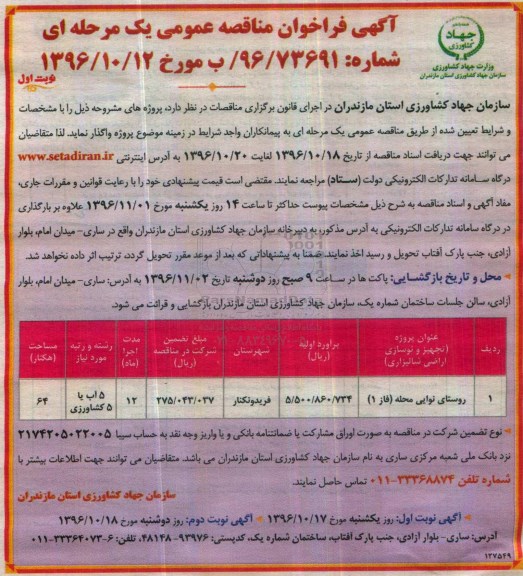 آگهی فراخوان مناقصه عمومی یک مرحله ای
شماره: ۹۶/۷۳۶۹۱/ ب مورخ ۱۳۹۶/۱۰/۱۲
نوبت اول
جهاد
کشاورزی
وزارت جهاد کشاورزی
سازمان جهاد کشاورزی استان مازندران
سازمان جهاد کشاورزی استان مازندران در اجرای قانون برگزاری مناقصات در نظر دارد، پروژه های مشروحه ذیل را با مشخصات
و شرایط تعیین شده از طریق مناقصه عمومی یک مرحله ای به پیمانکاران واجد شرایط در زمینه موضوع پروژه واگذار نماید. لذا متقاضیان
می توانند جهت دریافت اسناد مناقصه از تاریخ ۱۳۹۶/۱۰/۱۸ لغایت ۱۳۹۶/۱۰/۲۰ به آدرس اینترنتی www.setadiran.ir
درگاه سامانه تدارکات الکترونیکی دولت (ستاد) مراجعه نمایند. مقتضی است قیمت پیشنهادی خود را با رعایت قوانین و مقررات جاری،
مفاد آگهی و اسناد مناقصه به شرح ذیل مشخصات پیوست حداکثر تا ساعت ۱۴ روز یکشنبه مورخ ۱۳۹۶/۱۱/۰۱ علاوه بر بارگذاری
در درگاه سامانه تدارکات الکترونیکی به آدرس مذکور، به دبیرخانه سازمان جهاد کشاورزی استان مازندران واقع در ساری- میدان امام، بلوار
آزادی، جنب پارک آفتاب تحویل و رسید اخذ نمایند. ضمنا به پیشنهاداتی که بعد از موعد مقرر تحویل گردد، ترتیب اثر داده نخواهد شد.
محل و تاریخ بازگشایی: پاکت ها در ساعت ۹ صبح روز دوشنبه تاریخ ۱۳۹۶/۱۱/۰۲ به آدرس: ساری- میدان امام، بلوار
آزادی، سالن جلسات ساختمان شماره یک، سازمان جهاد کشاورزی استان مازندران بازگشایی و قرائت می شود.
ردیف
عنوان پروژه (تجهیز و نوسازی اراضی شالیزاری)
براورد اولیه (ریال)
شهرستان
مبلغ تضمین شرکت در مناقصه (ریال)
مدت اجرا (ماه)
رشته و رتبه مورد نیاز
مساحت (هکتار)
۱
روستای نوایی محله (فاز ۱)
۵/۵۰۰/۸۶۰/۷۳۴
فریدونکنار
۲۷۵/۰۴۳/۰۳۷
۱۲
۵ آب یا ۵ کشاورزی
۶۴
نوع تضمین شرکت در مناقصه به صورت اوراق مشارکت یا ضمانتنامه بانکی و یا واریز وجه نقد به حساب سیبا ۲۱۷۴۲۰۵۰۲۲۰۰۵
نزد بانک ملی شعبه مرکزی ساری به نام سازمان جهاد کشاورزی استان مازندران می باشد. متقاضیان می توانند جهت اطلاعات بیشتر با
شماره تلفن ۳۳۳۶۸۸۷۴-۰۱۱ تماس حاصل نمایند.
سازمان جهاد کشاورزی استان مازندران
آگهی نوبت اول: روز یکشنبه مورخ ۱۳۹۶/۱۰/۱۷ آگهی نوبت دوم: روز دوشنبه مورخ ۱۳۹۶/۱۰/۱۸
آدرس: ساری- بلوار آزادی، جنب پارک آفتاب، ساختمان شماره یک، کدپستی: ۹۳۹۷۶-۴۸۱۴۸، تلفن: ۶-۳۳۳۶۴۰۷۳-۰۱۱
۱۲۷۵۴۹